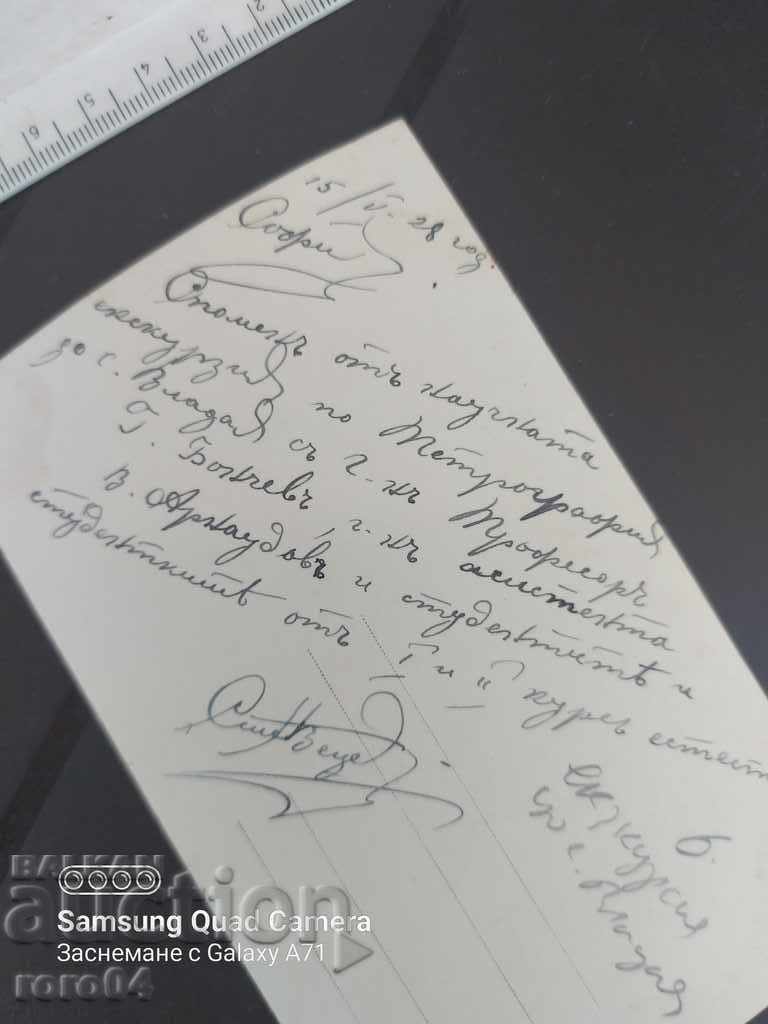 2 3 4 5 6
15/V. 28 год.
София
Споменъ отъ научната
екскурзия по Петрография
до с. Владая съ г-нъ Професоръ
Г. Бончевъ, г-нъ асистента
В. Арнаудовъ и студентитѣ и
студенткитѣ отъ I и II курсъ естеств
екскурзия
до с. Владая
6.
BALKAN
auction
roro04
Samsung Quad Camera
Заснемане с Galaxy A71